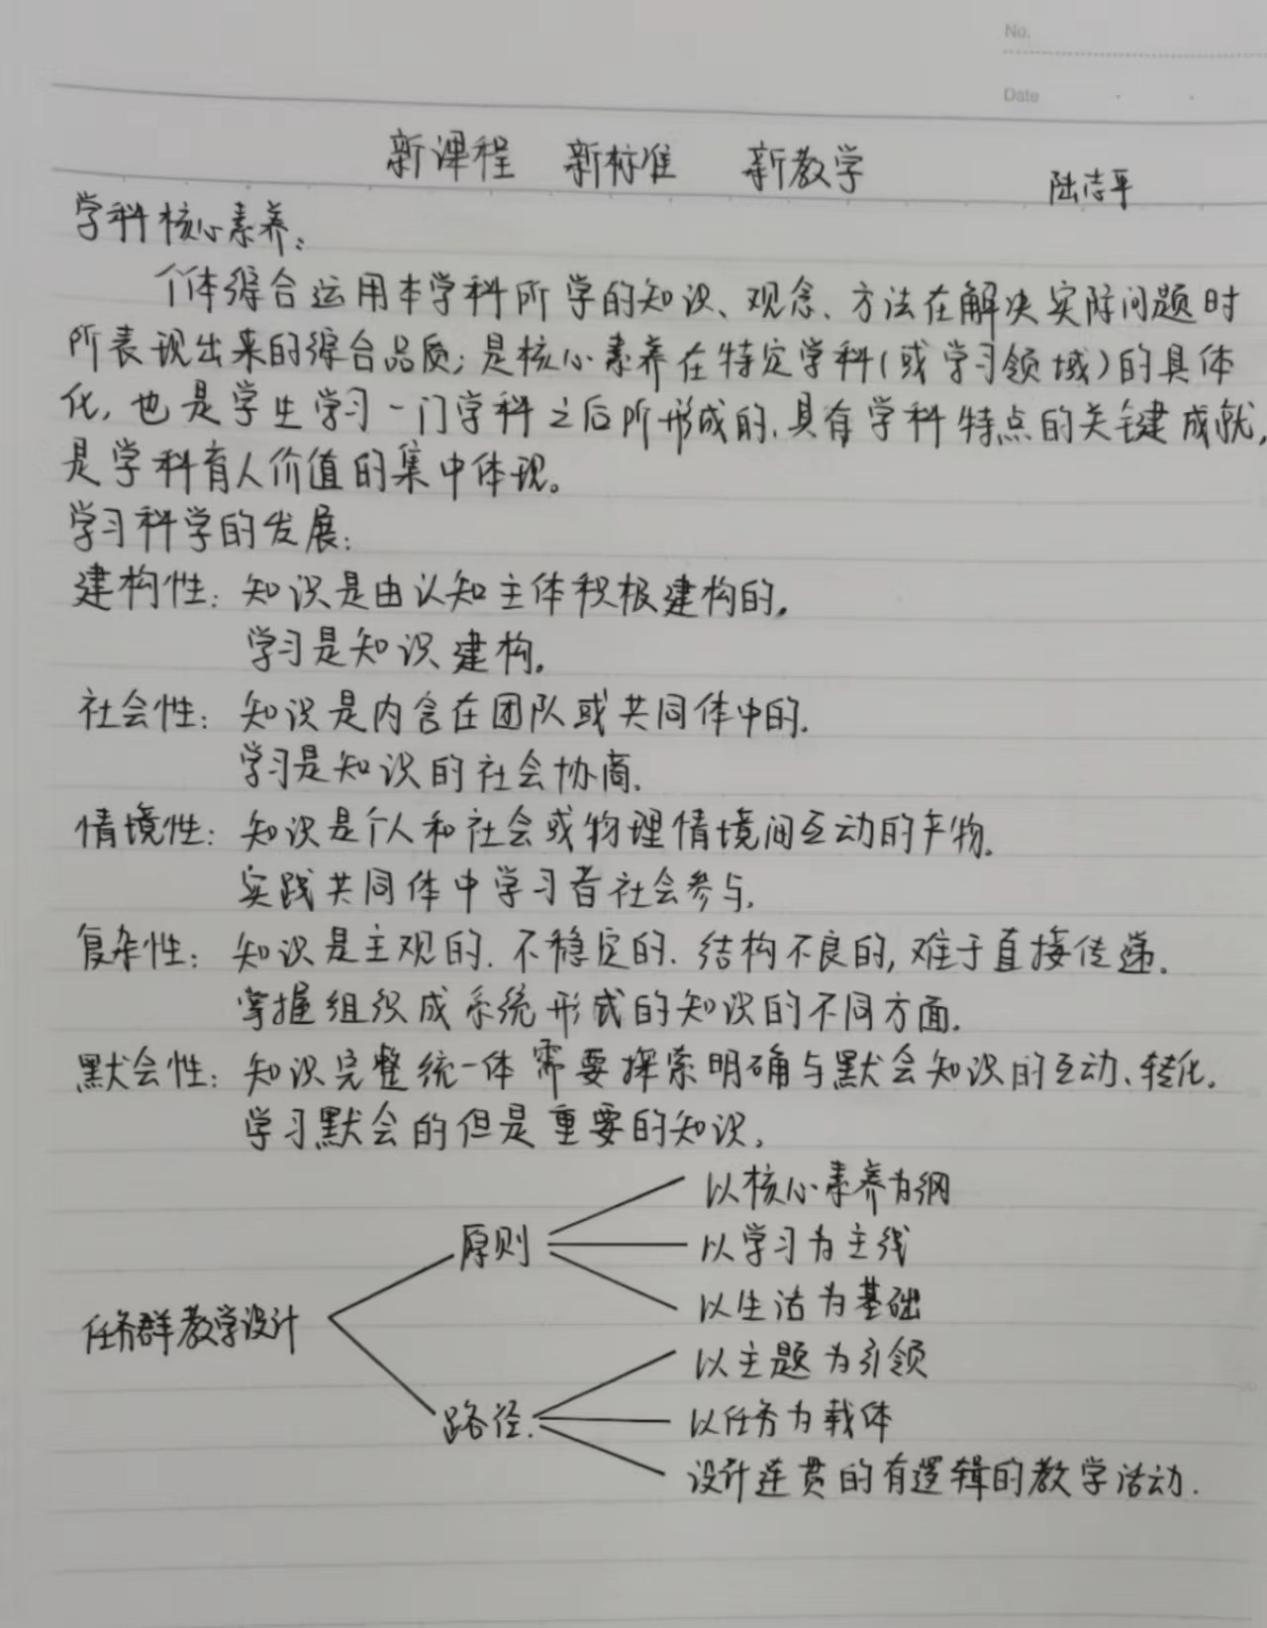 No.
Date
新课程 新标准 新教学
陆志平
学科核心素养:
个体综合运用本学科所学的知识、观念、方法在解决实际问题时
所表现出来的综合品质;是核心素养在特定学科(或学习领域)的具体
化,也是学生学习一门学科之后所形成的、具有学科特点的关键成就,
是学科育人价值的集中体现。
学习科学的发展:
建构性:知识是由认知主体积极建构的。
学习是知识建构。
社会性:知识是内含在团队或共同体中的.
学习是知识的社会协商.
情境性:知识是个人和社会或物理情境间互动的产物.
实践共同体中学习者社会参与.
复杂性:知识是主观的.不稳定的.结构不良的,难于直接传递.
掌握组织成系统形式的知识的不同方面.
默会性:知识完整统一体需要探索明确与默会知识的互动、转化.
学习默会的但是重要的知识.
以核心素养为纲
原则 以学习为主线
以生活为基础
任务群教学设计
以主题为引领
路径. 以任务为载体
设计连贯的有逻辑的教学活动.